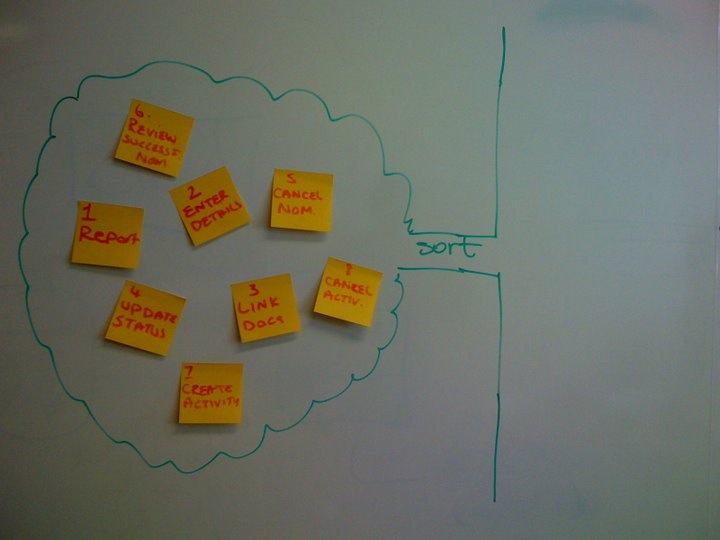 6.
REVIEW
SUCCESS.
NOM
2
ENTER
DETAILS
5
CANCEL
NOM.
1
Report
sort
8
CANCEL
ACTIV.
3
LINK
DOCS
4
UPDATE
STATUS
7
CREATE
ACTIVITY